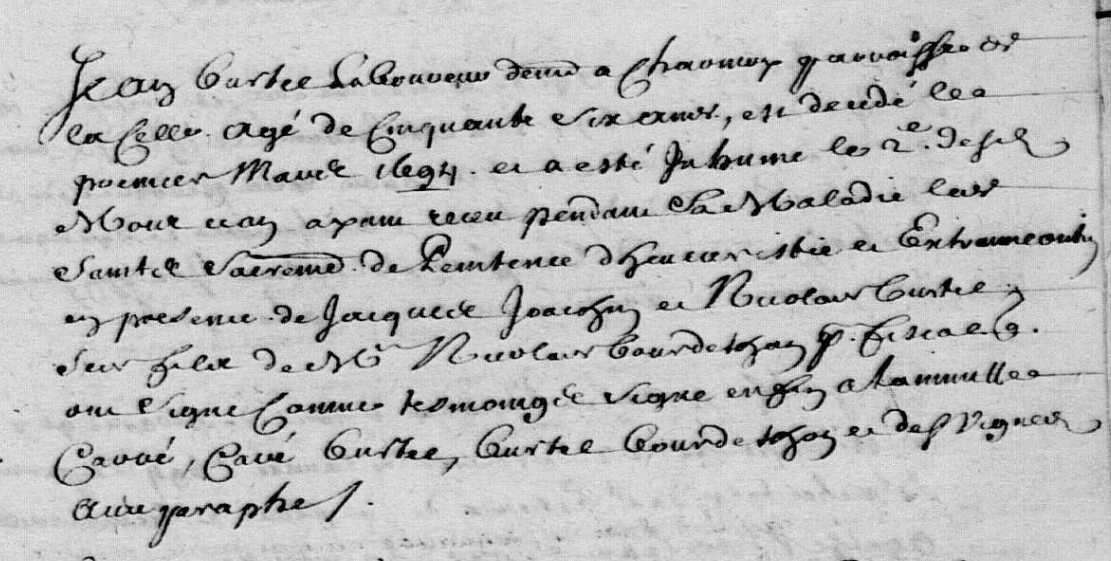 Jean Curtel Laboureur demt a Charmoy parroisse de
la Celle agé de Cinquante Six ans, est decedé le
premier Mars 1694. et a esté Inhumé le 2e. desd
Mois et an ayant receu pendant Sa Maladie les
Saints Sacremens. de Penitence d'heucaristie et Extremeontion
en presence de Jacques Joachin et Nicolas Curtel
Ses fils de Mr Nicolas Courdethon p. fiscal q.
ont Signé Comme tesmoings Signé enfin a la minutte
Cavvé, Cavé Curtel, Curtel Courdethon et des Vignes
avec paraphes